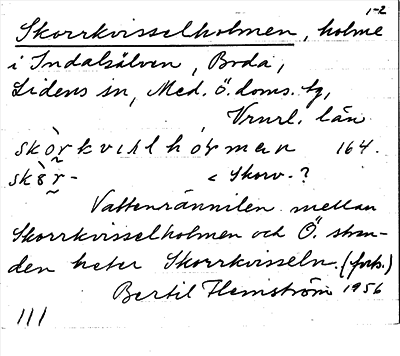 1-2
Skorrkvisselholmen, holme
i Indalsälven, Boda,
Lidens sn, Med. ö. doms. tg,
Vrnrl. län
skòrkvislhòrmen 164.
skòr- < Skorv-?
Vattenrännilen mellan
Skorrkvisselholmen och Ö. stran-
den heter Skorrkvisseln. (forts.)
Bertil Flemström 1956
111